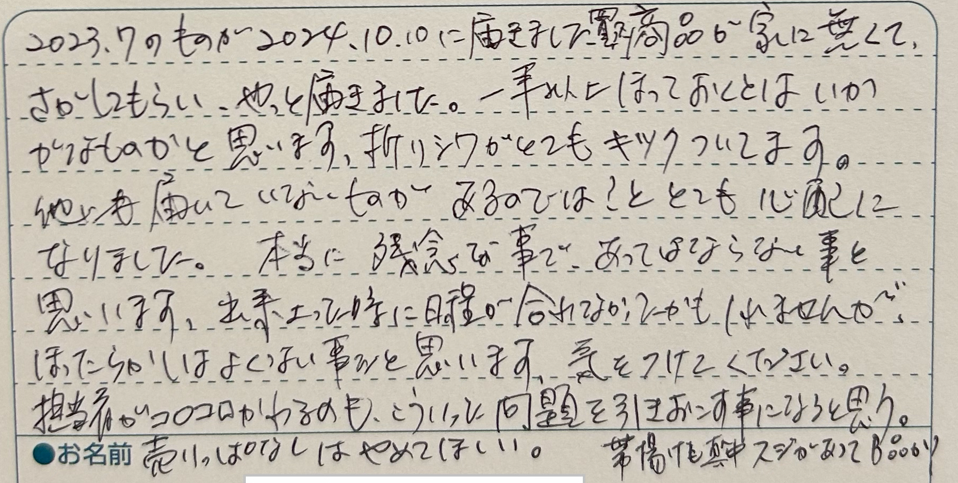 2023.7のものが2024.10.10に届きました買った商品が家に無くて、
さがしてもらい、やっと届きました。一年以上ほっておくとはいかが
なものかと思います、折りシワがとてもキツクついてます。
他にも届いていないものがあるのでは?ととても心配に
なりました。本当に残念な事で、あってはならない事と
思います、出来上った時に日程が合わなかったかもしれませんが、
ほったらかしはよくない事だと思います、気をつけてください。
担当者がコロコロかわるのも、こういった問題を引きおこす事になると思う。
●お名前 売りっぱなしはやめてほしい。 帯揚げも真中スジがあって